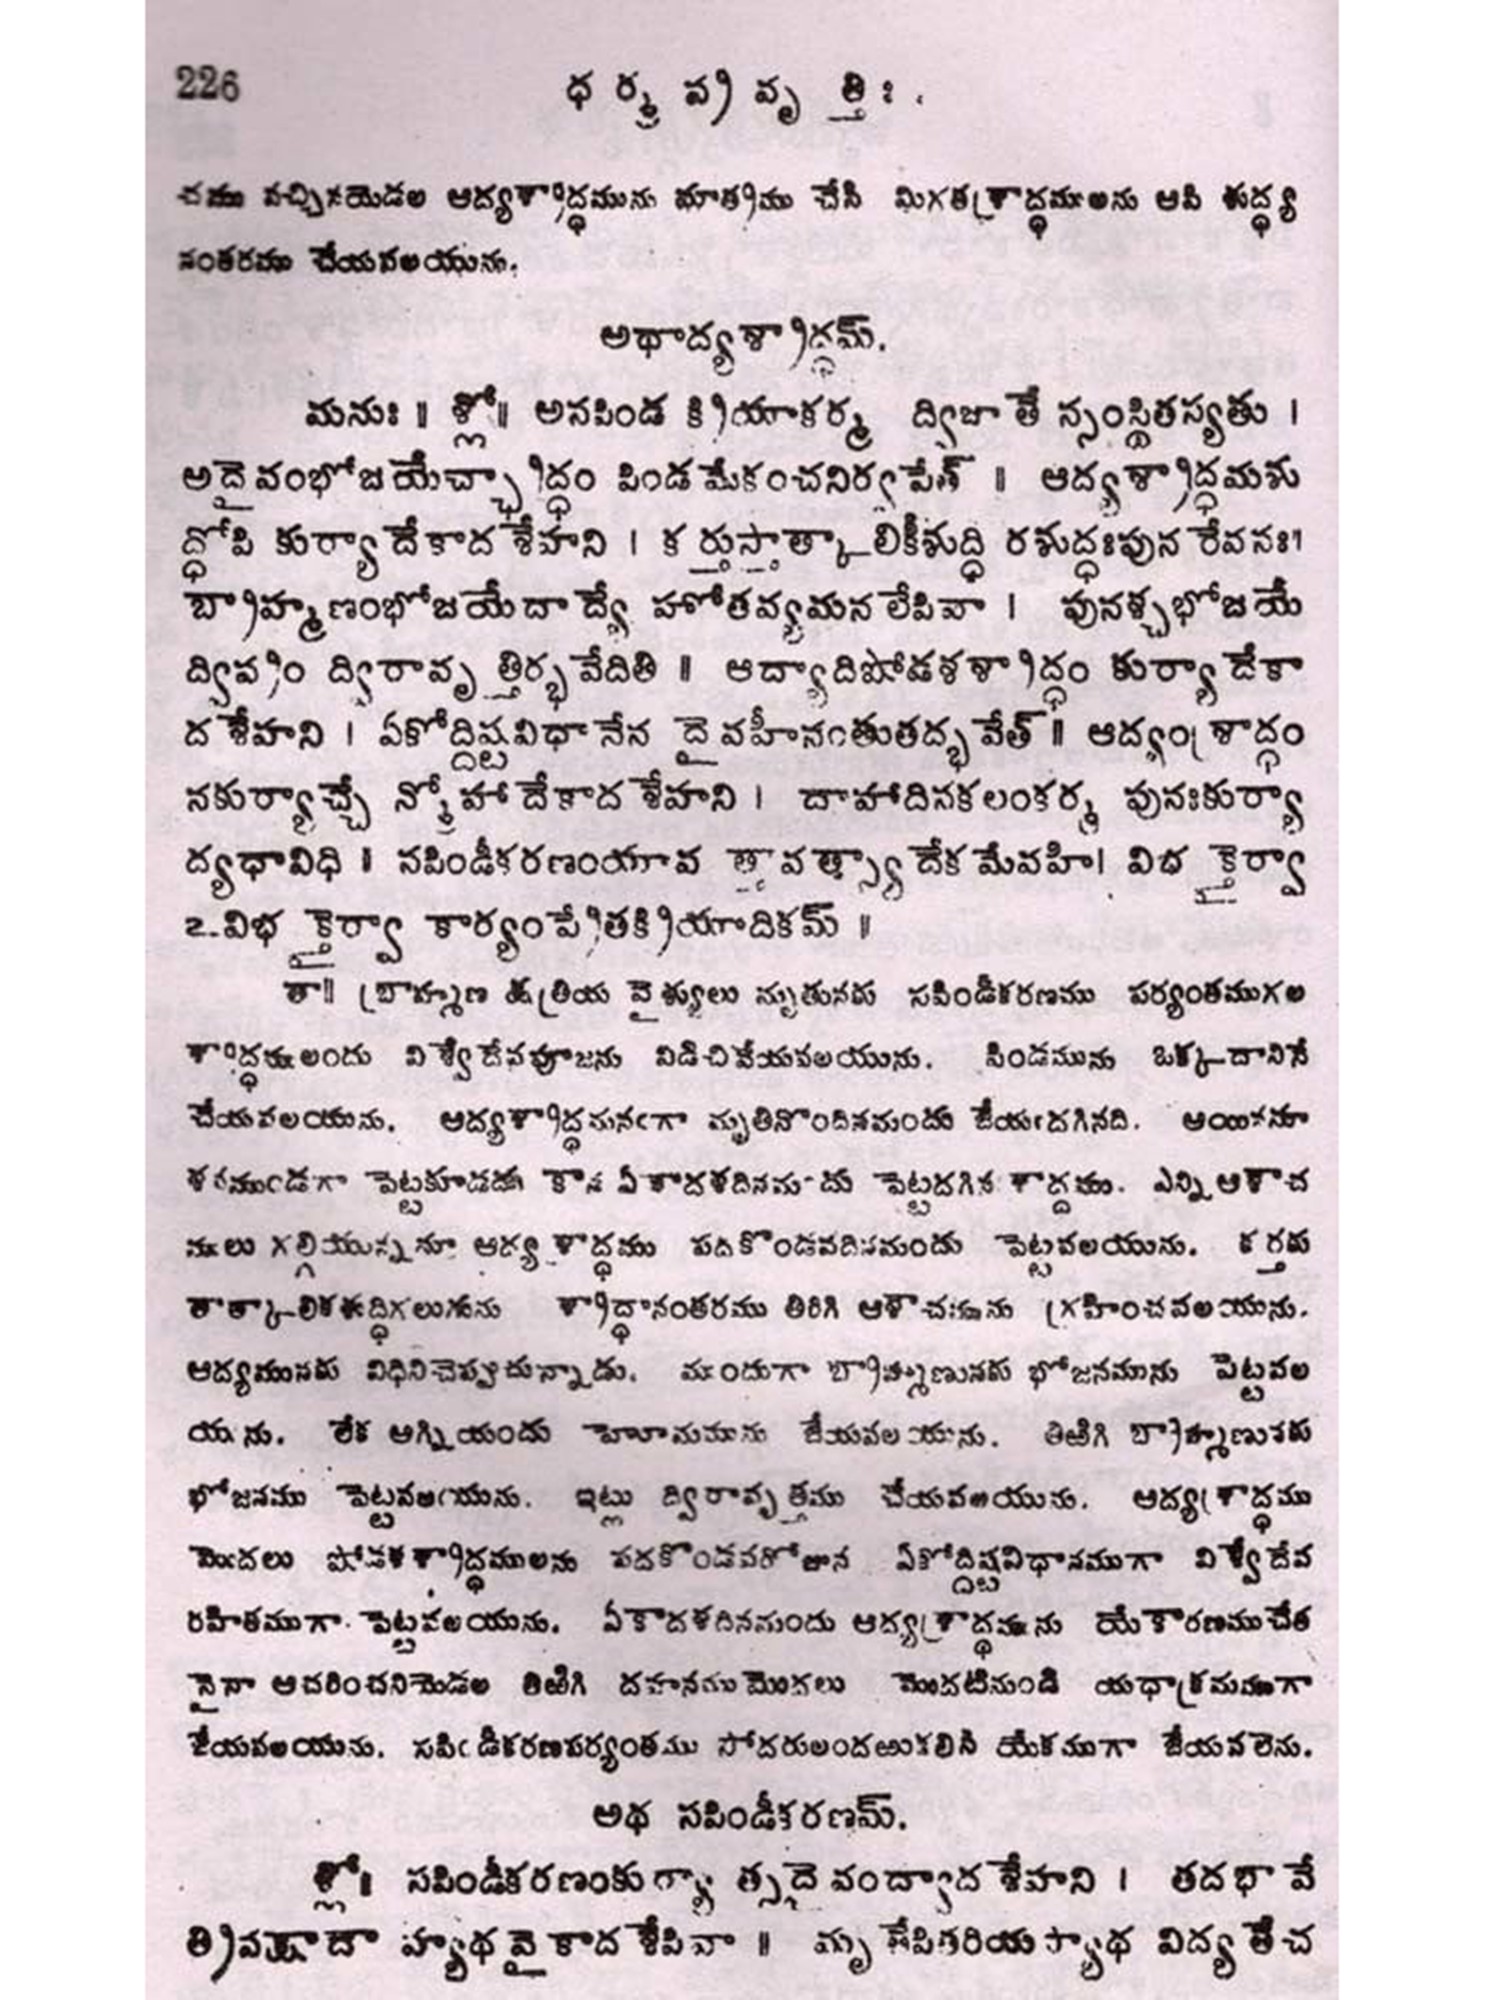 226
ధర్మప్రవృత్తిః
చము వచ్చినయెడల ఆద్యశ్రాద్ధమును మాత్రము చేసి మిగతశ్రాద్ధములను ఆపి శుద్ధ్య
నంతరము చేయవలయును.
అథాద్యశ్రాద్ధమ్.
మనుః ॥ శ్లో॥ అసపిండ క్రియాకర్మ ద్విజాతే స్సంస్థితస్యతు ।
అదైవంభోజయేచ్ఛ్రాద్ధం పిండమేకంచనిర్వపేత్ ॥ ఆద్యశ్రాద్ధమశు
ద్ధోపి కుర్యాదేకాదశేహని । కర్తుస్తాత్కాలికీశుద్ధి రశుద్ధఃపునరేవసః।
బ్రాహ్మణంభోజయేదాద్యే హోతవ్యమనలేపివా । పునశ్చభోజయే
ద్విప్రం ద్విరావృత్తిర్భవేదితి ॥ ఆద్యాదిషోడశశ్రాద్ధం కుర్యాదేకా
దశేహని । ఏకోద్దిష్టవిధానేన దైవహీనంతుతద్భవేత్ ॥ ఆద్యంశ్రాద్ధం
నకుర్యాచ్చే న్మోహాదేకాదశేహని । దాహాదిసకలంకర్మ పునఃకుర్యా
ద్యథావిధి ॥ సపిండీకరణంయావ త్తావత్స్యాదేకమేవహి। విభక్తైర్వా
ఽవిభక్తైర్వా కార్యంప్రేతక్రియాదికమ్ ॥
తా॥ బ్రాహ్మణ క్షత్రియ వైశ్యులు మృతునకు సపిండీకరణము పర్యంతముగల
శ్రాద్ధములందు విశ్వేదేవపూజను విడిచివేయవలయును. పిండమును ఒక్కదానినే
చేయవలయును. ఆద్యశ్రాద్ధమనఁగా మృతినొందినమందు జేయఁదగినది. ఆయినను
శవముండగా పెట్టకూడదు కాన ఏకాదశదినమందు పెట్టదగిన శ్రాద్ధము. ఎన్ని ఆశౌచ
ములు గల్గియున్ననూ ఆద్యశ్రాద్ధము పదికొండవదినమందు పెట్టవలయును. కర్తకు
తాత్కాలికశుద్ధిగలుగును శ్రాద్ధానంతరము తిరిగి ఆశౌచమును గ్రహించవలయును.
ఆద్యమునకు విధినిచెప్పుచున్నాడు. ముందుగా బ్రాహ్మణునకు భోజనమును పెట్టవల
యును. లేక అగ్నియందు హోమమును జేయవలయును. తిఱిగి బ్రాహ్మణునకు
భోజనము పెట్టవలయును. ఇట్లు ద్విరావృత్తము చేయవలయును. ఆద్యశ్రాద్ధము
మొదలు షోడశశ్రాద్ధములను పదకొండవరోజున ఏకోద్దిష్టవిధానముగా విశ్వేదేవ
రహితముగా పెట్టవలయును. ఏకాదశదినమందు ఆద్యశ్రాద్ధమును యేకారణముచేత
నైనా ఆచరించనియెడల తిఱిగి దహనముమొదలు మొదటినుండి యథాక్రమముగా
జేయవలయును. సపిండీకరణపర్యంతము సోదరులందఱుకలిసి యేకముగా జేయవలెను.
అథ సపిండీకరణమ్.
శ్లో॥ సపిండీకరణంకుర్యా త్సదైవంద్వాదశేహని । తదభావే
త్రిపక్షాదా హ్యథవైకాదశేపివా ॥ మృతేపితరియస్యాథ విద్యతేచ